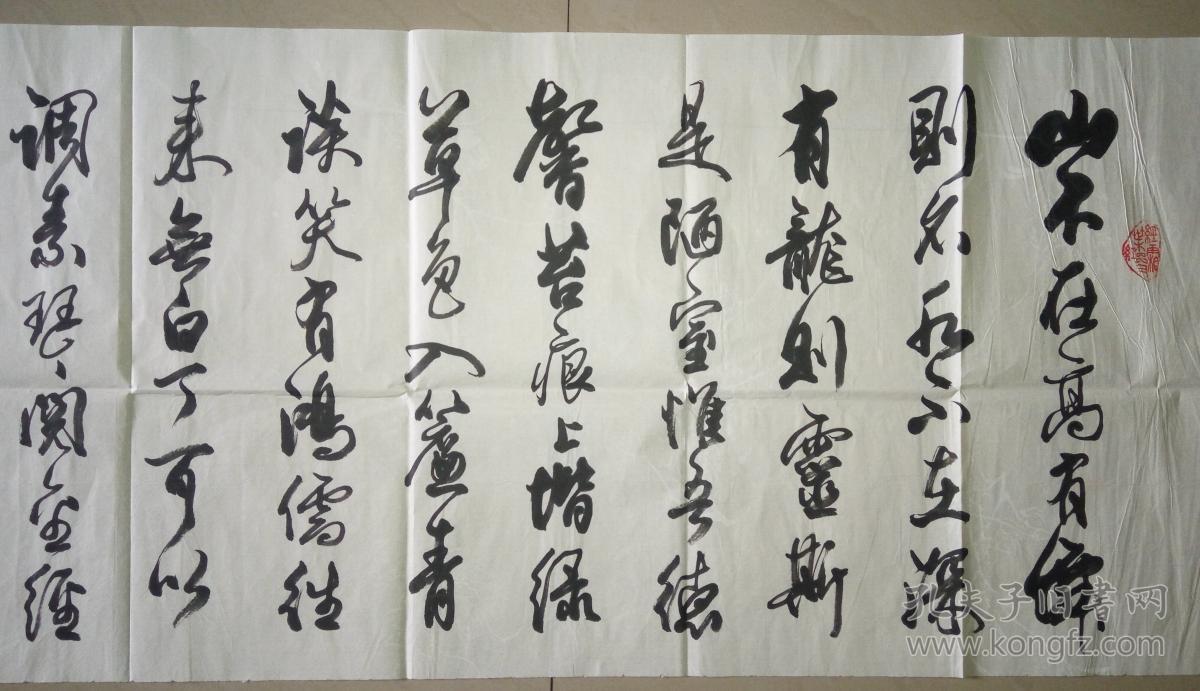 山不在高有僊
則名水不在深
有龍则靈斯
是陋室惟吾德
馨苔痕上堦绿
草色入簾青
谈笑有鸿儒往
来無白丁可以
调素琴阅金经
孔夫子旧书网
www.kongfz.com